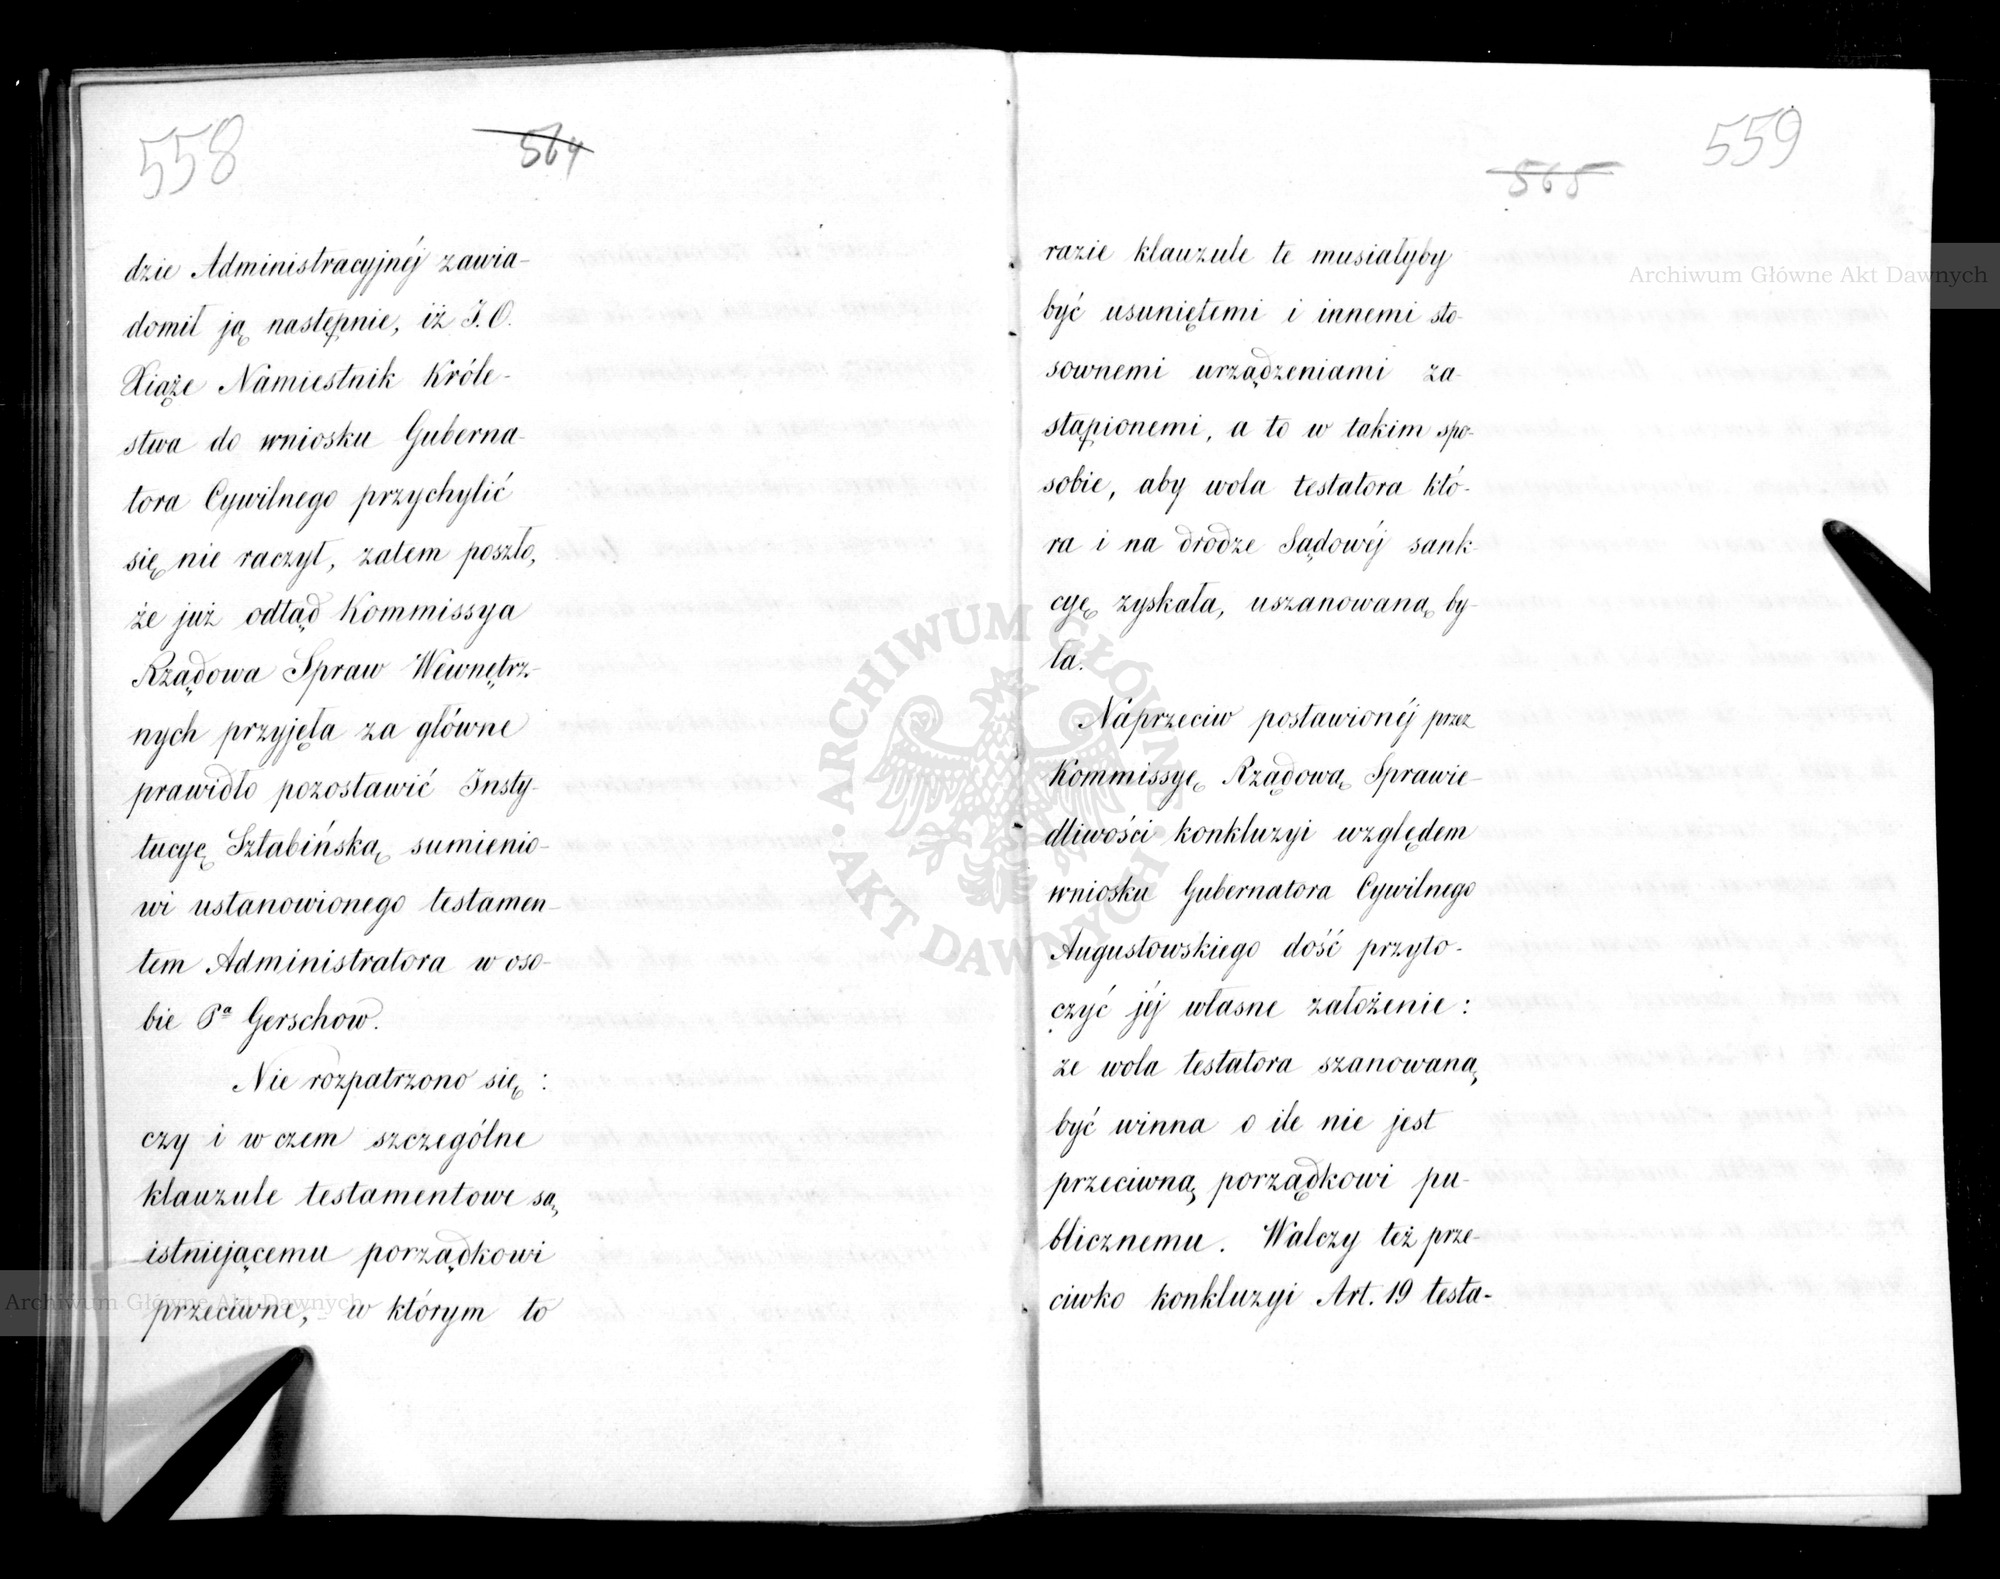 558
564
dzie Administracyjnéj zawia-
domił ją następnie, iż J. O.
Xiąże Namiestnik Króle-
stwa do wniosku Guberna-
tora Cywilnego przychylić
się nie raczył, zatem poszło,
że już odtąd Kommissya
Rządowa Spraw Wewnętrz-
nych przyjęła za główne
prawidło pozostawić Insty-
tucyę Sztabińską sumienio-
wi ustanowionego testamen-
tem Administratora w oso-
bie Pª Gerschow.
Nie rozpatrzono się:
czy i w czem szczególne
klauzule testamentowe są
istniejącemu porządkowi
przeciwne, w którym to
559
565
razie klauzule te musiałyby
być usuniętemi i innemi sto-
sownemi urządzeniami za-
stąpionemi, a to w takim spo-
sobie, aby wola testatora któ-
ra i na drodze Sądowéj sank-
cyę zyskała, uszanowaną by-
ła.
Naprzeciw postawionéj przez
Kommissyę Rządową Sprawie-
dliwości konkluzyi względem
wniosku Gubernatora Cywilnego
Augustowskiego dość przyto-
czyć jéj własne założenie:
że wola testatora szanowaną
być winna o ile nie jest
przeciwną porządkowi pu-
blicznemu. Walczy też prze-
ciwko konkluzyi Art. 19 testa-
Archiwum Główne Akt Dawnych
Archiwum Główne Akt Dawnych
ARCHIWUM GŁÓWNE AKT DAWNYCH